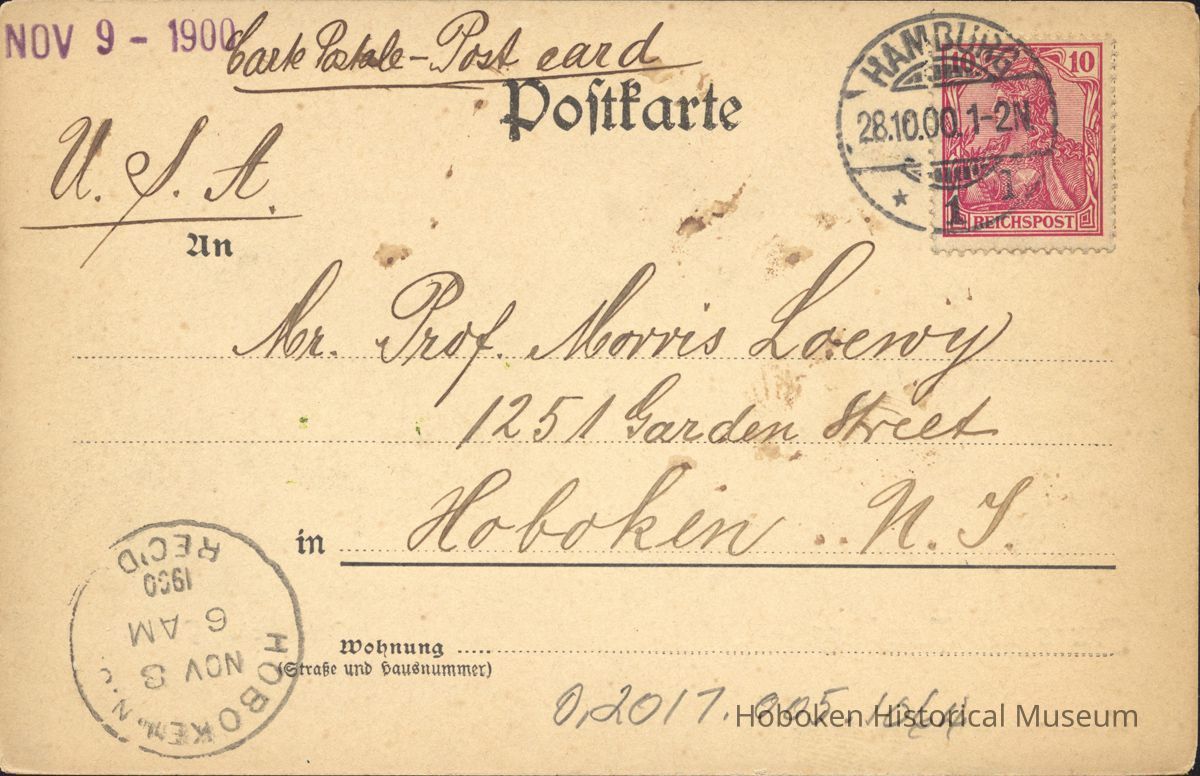 NOV 9 - 1900
Carte Postale - Post card
Postkarte
HAMBURG
28.10.00. 1-2N
*
1
10 10
REICHSPOST
U. S. A.
An
Mr. Prof. Morris Loewy
1251 Garden Street
in Hoboken .. N. J.
Wohnung
(Straße und Hausnummer)
HOBOKEN, N.
NOV 8
6 AM
1900
REC'D
0,2017.005.
Hoboken Historical Museum